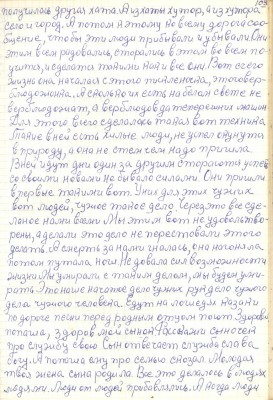 103
получилась другая хата. А из хаты хутор, а из хутора
село и город. А потом я этому по всему дорога соо-
бщение, чтобы эти люди прибывали и убывали. Они
этим всем радовались, старались в этом во всем по-
учится, и сделать такими как и все они. Вот с чего
жизнь она началася с этого тимленька, этого вер-
блюдожника. А сколько их есть на белом свете не
верблюдожат, а верблюдов да теперешних машин
Для этого всего сделалась такая вот техника
Такие в ней есть милые люди, не успел окунуть
в природу, а она не с тем чем надо пришла.
В ней идут дни один за другим стараются успеть
со своими новыми небывало силами. Они пришли
впервые такими вот. У них для этих чужих
вот людей, чужое такое дело. Через это все сде-
ланое нами всеми Мы этим вот не удовлетво-
рены, а делали это дело не перестовали этого
делать. А смерть за нами гналась, она нагоняла
потом путала нам Не давала сил возможности
жизни. Мы умирали с таким делом, мы будем уми-
рать Это наше начатое дело чужих рук дело чужого
дела чужого человека. Едут на лошадях казаки
по дороге песни перед родным отцом поют. Здорово
попаша, здоров мой сынок. Расскажи сыночек
про службу свою. Сын отвечает служба слава
богу. А попаша ему про семью сказал. Молодая
твоя жена сына родила. Все это делалось в людях
людями. Люди от людей прибавлялись. А когда люди